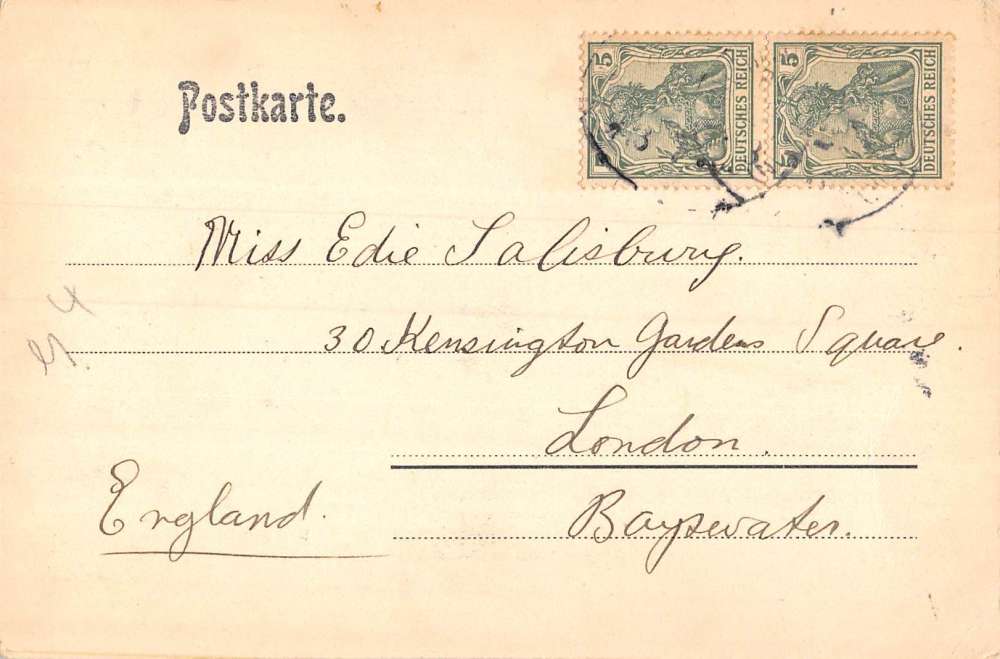 Postkarte.
5 DEUTSCHES REICH 5
5 DEUTSCHES REICH 5
Miss Edie Salisbury.
30 Kensington Gardens Square.
London.
England.
Bayswater.